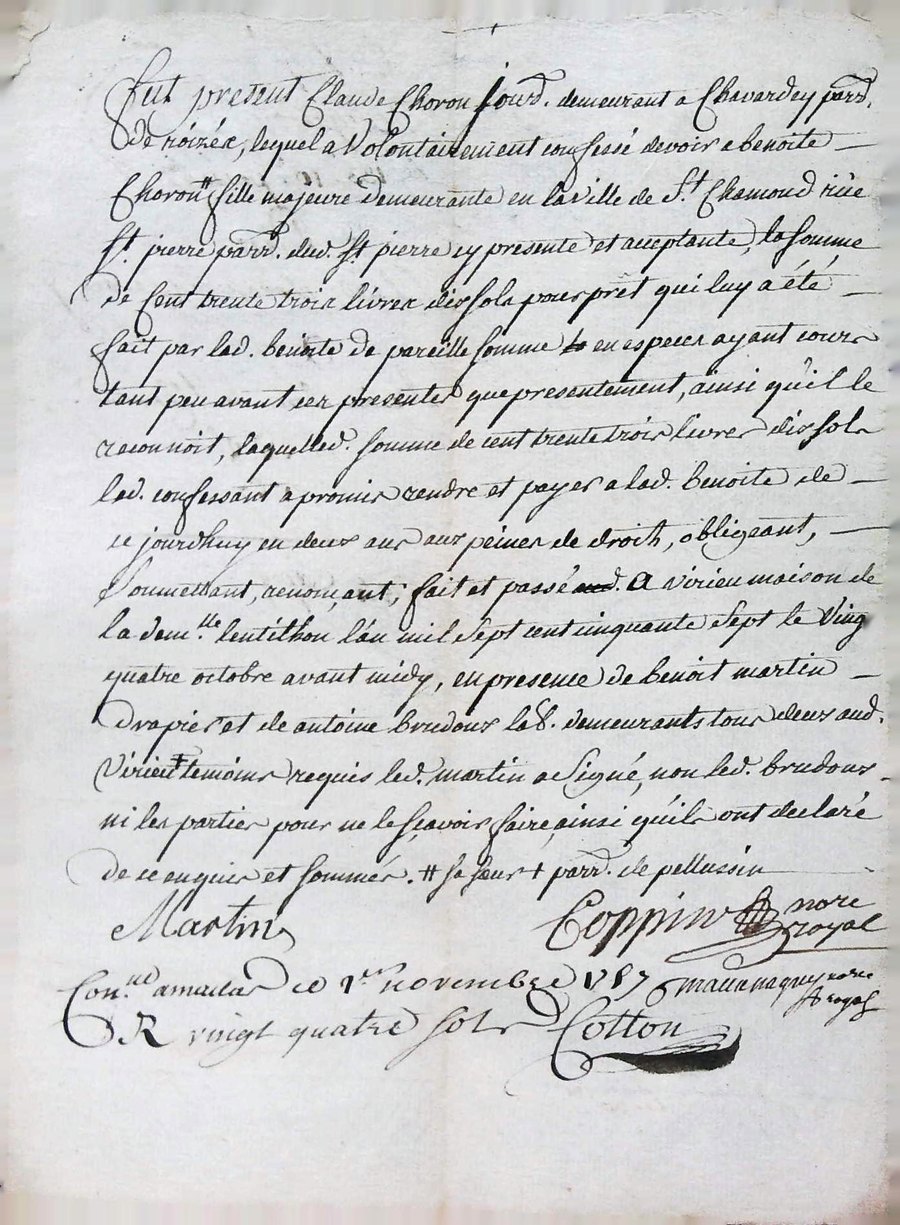 fut présent Claude Choron jourd. demeurant a Chavardey parr.
de roizéa, lequel a Volontairement confessé devoir a benoite
Choron # fille majeure demeurante en la ville de St. Chamond rüe
St. pierre parr. dud. St. pierre cy presente et acceptante, la somme
de Cent trente trois livres dix sols pour prêt qui luy a été
fait par lad. benoite de pareille somme en especes ayant cours
tant peu avant ces presentes que presentement, ainsi qu'il le
reconnoit, laquelled. somme de cent trente trois livres dix sols
led. confessant a promis rendre et payer a lad. benoite de
ce jourdhuy en deux ans aux peines de droits, obligeant,
soumettant, renonçant; fait et passé a virieu maison de
la dem.lle lentithon l'an mil sept cent cinquante sept le Ving
quatre octobre avant midy, en presence de benoit martin
drapier et de antoine brudous lab. demeurants tous deux aud.
Virieu + temoins requis led. martin a signé, non led. brudous
ni les parties pour ne le sçavoir faire, ainsi qu'ils ont declaré
de ce enquis et sommés. # sa seur + parr. de pellussin
Martin
Coppin nore
royal
Con.lle a ce 1er novembre 1757 nore
royal
R vingt quatre sols Cotton